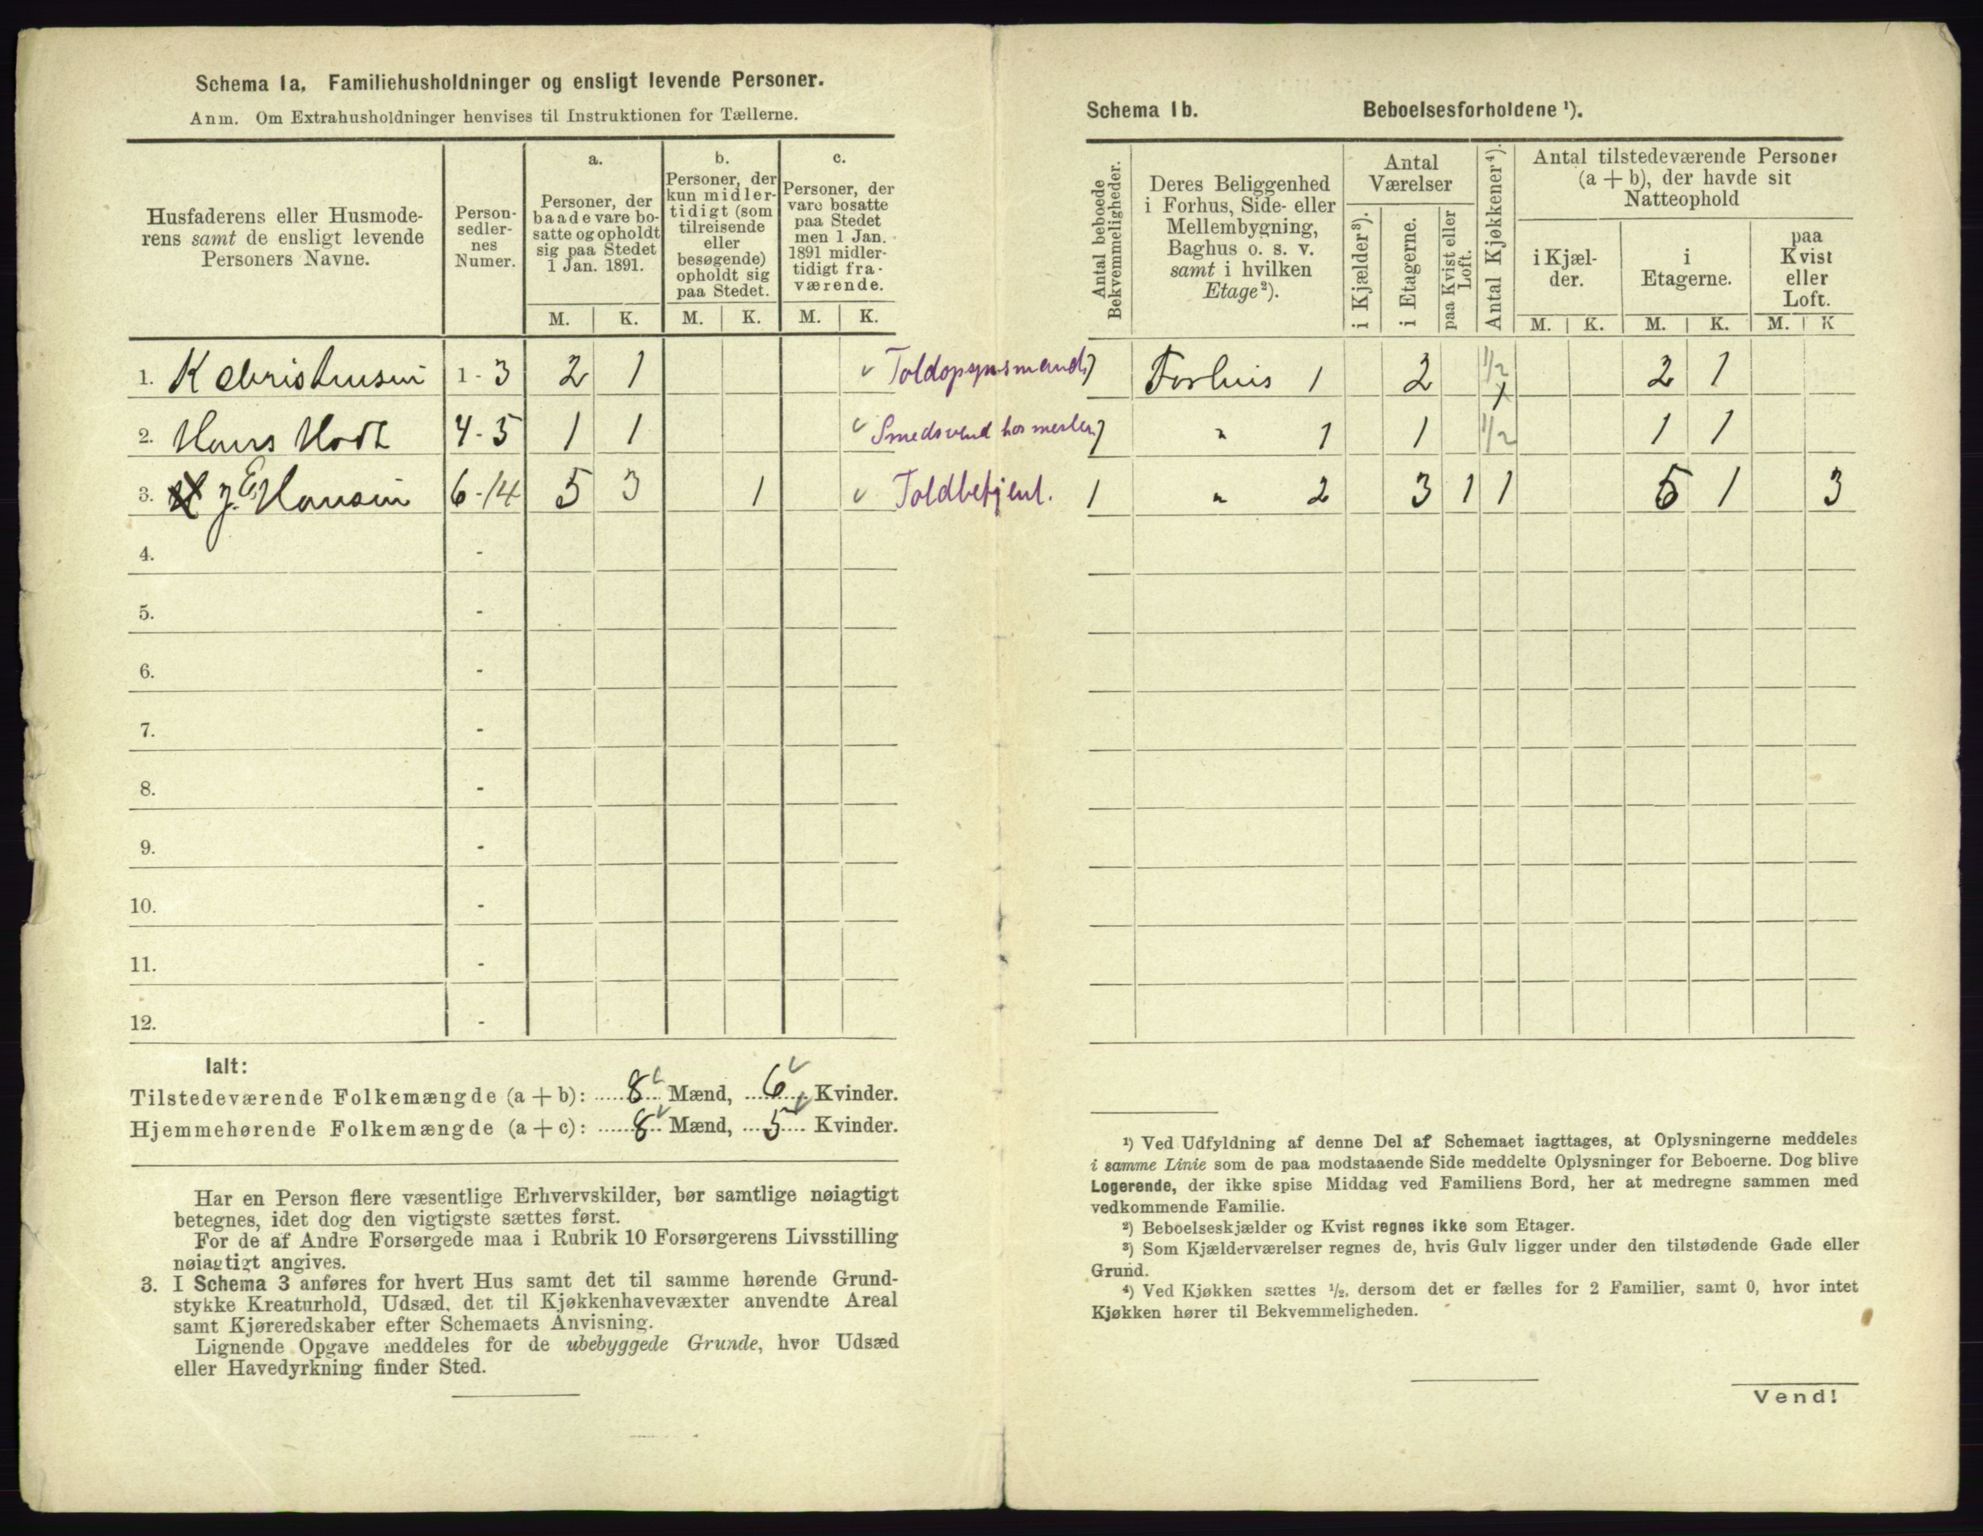 Schema 1a. Familiehusholdninger og ensligt levende Personer.
Anm. Om Extrahusholdninger henvises til Instruktionen for Tællerne.
Husfaderens eller Husmode-
rens samt de ensligt levende
Personers Navne.
Person-
sedler-
nes
Numer.
a.
Personer, der
baade vare bo-
satte og opholdt
sig paa Stedet
1 Jan. 1891.
b.
Personer, der
kun midler-
tidigt (som
tilreisende
eller
besøgende)
opholdt sig
paa Stedet.
c.
Personer, der
vare bosatte
paa Stedet
men 1 Jan.
1891 midler-
tidigt fra-
værende.
M. K. M. K. M. K.
1. K Christensen 1 - 3 2 1 Toldopsynsmand
2. Hans Hodt 4 - 5 1 1 Smedsvend hos mester
3. J. E. Hansen 6 - 14 5 3 1 Toldbetjent.
4. -
5. -
6. -
7. -
8. -
9. -
10. -
11. -
12. -
Ialt:
Tilstedeværende Folkemængde (a + b): 8 Mænd, 6 Kvinder.
Hjemmehørende Folkemængde (a + c): 8 Mænd, 5 Kvinder.
Har en Person flere væsentlige Erhvervskilder, bør samtlige nøiagtigt
betegnes, idet dog den vigtigste sættes først.
For de af Andre Forsørgede maa i Rubrik 10 Forsørgerens Livsstilling
nøiagtigt angives.
3. I Schema 3 anføres for hvert Hus samt det til samme hørende Grund-
stykke Kreaturhold, Udsæd, det til Kjøkkenhavevæxter anvendte Areal
samt Kjøreredskaber efter Schemaets Anvisning.
Lignende Opgave meddeles for de ubebyggede Grunde, hvor Udsæd
eller Havedyrkning finder Sted.
Schema 1b. Beboelsesforholdene ¹).
Antal beboede
Bekvemmeligheder.
Deres Beliggenhed
i Forhus, Side- eller
Mellembygning,
Baghus o. s. v.
samt i hvilken
Etage²).
Antal
Værelser
i Kjælder³).
i Etagerne.
paa Kvist eller
Loft.
Antal Kjøkkener⁴).
Antal tilstedeværende Personer
(a + b), der havde sit
Natteophold
i Kjæl-
der.
i
Etagerne.
paa
Kvist
eller
Loft.
M. K. M. K. M. K
1 Forhus 1 2 1/2 2 1
1 " 1 1 1/2 1 1
1 " 2 3 1 1 5 1 3
¹) Ved Udfyldning af denne Del af Schemaet iagttages, at Oplysningerne meddeles
i samme Linie som de paa modstaaende Side meddelte Oplysninger for Beboerne. Dog blive
Logerende, der ikke spise Middag ved Familiens Bord, her at medregne sammen med
vedkommende Familie.
²) Beboelseskjælder og Kvist regnes ikke som Etager.
³) Som Kjælderværelser regnes de, hvis Gulv ligger under den tilstødende Gade eller
Grund.
⁴) Ved Kjøkken sættes ½, dersom det er fælles for 2 Familier, samt 0, hvor intet
Kjøkken hører til Bekvemmeligheden.
Vend!